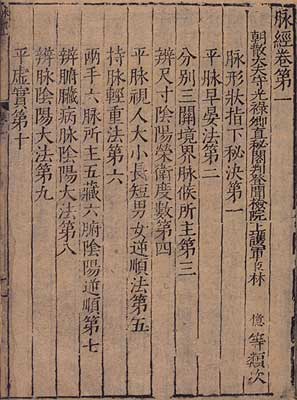 脉經卷第一
朝散大夫守光祿卿直秘閣判登聞檢院上護軍臣林億等類次
脉形狀指下秘決第一
平脉早晏法第二
分別三關境界脉候所主第三
辨尺寸陰陽榮衛度數第四
平脉視人大小長短男女逆順法第五
持脉輕重法第六
兩手六脉所主五藏六腑陰陽逆順第七
辨臓腑病脉陰陽大法第八
辨脉陰陽大法第九
平虛實第十